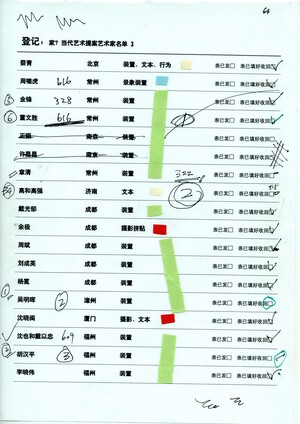 64
登记：家？当代艺术提案艺术家名单 3
蔡青 北京 装置、文本、行为 表已发□ 表已填好收回□
周啸虎 616 常州 录象装置 表已发□ 表已填好收回□
⑤ 金锋 328 常州 装置 表已发□ 表已填好收回□
⑥ 董文胜 616 常州 装置 表已发□ 表已填好收回□
南京 装置 表已发□ 表已填好收回□
许昌昌 南京 装置 表已发□ 表已填好收回□
章清 常州 装置 322 表已发□ 表已填好收回□
高和高强 济南 文本 ② 表已发□ 表已填好收回□
戴光郁 成都 装置 表已发□ 表已填好收回□
余极 成都 摄影拼贴 表已发□ 表已填好收回□
周斌 成都 装置 表已发□ 表已填好收回□
刘成英 成都 装置 表已发□ 表已填好收回□
杨冕 成都 装置 表已发□ 表已填好收回□
① 吴明晖 ② 漳州 装置 表已发□ 表已填好收回□
沈晓闽 厦门 摄影、文本 表已发□ 表已填好收回□
沈也和戴以忠 609 福州 装置 表已发□ 表已填好收回□
② 胡汉平 ③ 福州 装置 表已发□ 表已填好收回□
李晓伟 福州 装置 表已发□ 表已填好收回□